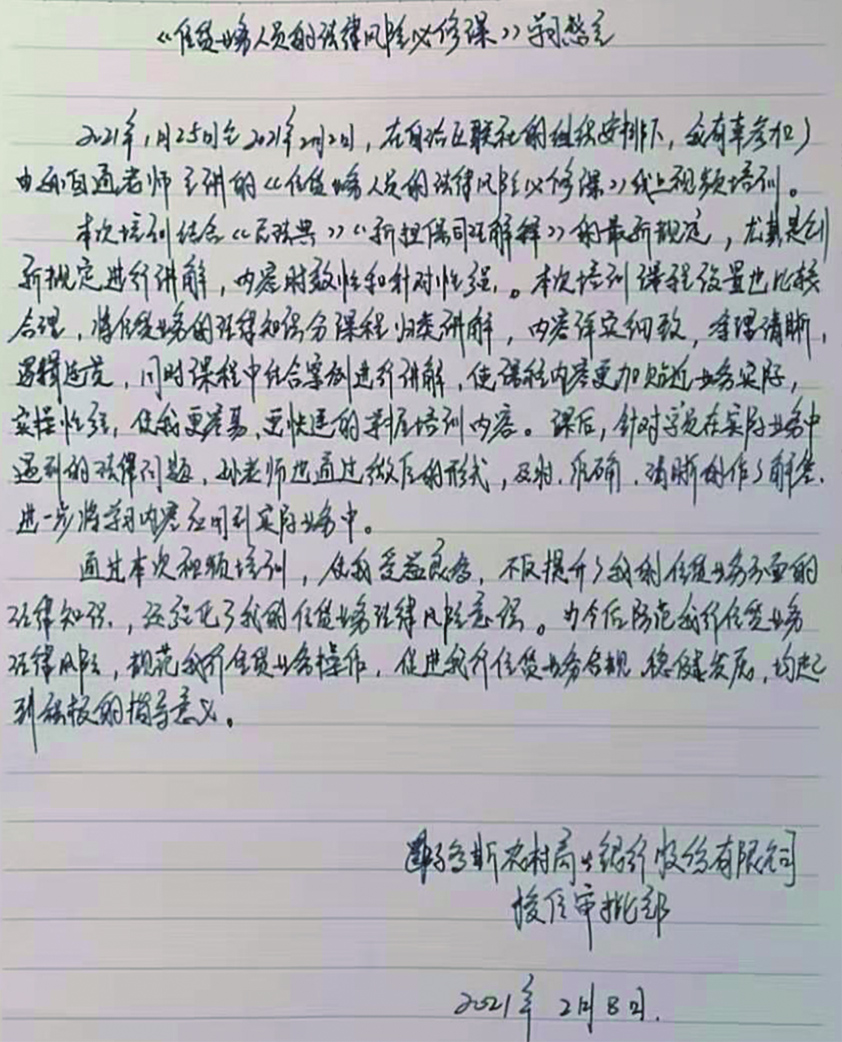 《信贷业务人员的法律风险必修课》学习感言
2021年1月25日至2021年2月2日，在自治区联社的组织安排下，我有幸参加了
由孙自通老师主讲的《信贷业务人员的法律风险必修课》线上视频培训。
本次培训结合《民法典》《新担保司法解释》的最新规定，尤其是创
新规定进行讲解，内容时效性和针对性强。本次培训课程设置也比较
合理，将信贷业务的法律知识分课程归类讲解，内容详实细致，条理清晰，
逻辑连贯，同时课程中结合案例进行讲解，使课程内容更加贴近业务实际，
实操性强，使我更容易、更快速的掌握培训内容。课后，针对学员在实际业务中
遇到的法律问题，孙老师也通过微信的形式，及时、准确、清晰的作了解答，
进一步将学习内容应用到实际业务中。
通过本次视频培训，使我受益良多，不仅提升了我的信贷业务方面的
法律知识，还强化了我的信贷业务法律风险意识。为今后防范我行信贷业务
法律风险，规范我行信贷业务操作，促进我行信贷业务合规、稳健发展，均起
到积极的指导意义。
斯农村商业银行股份有限公司
授信审批部
2021年2月8日.